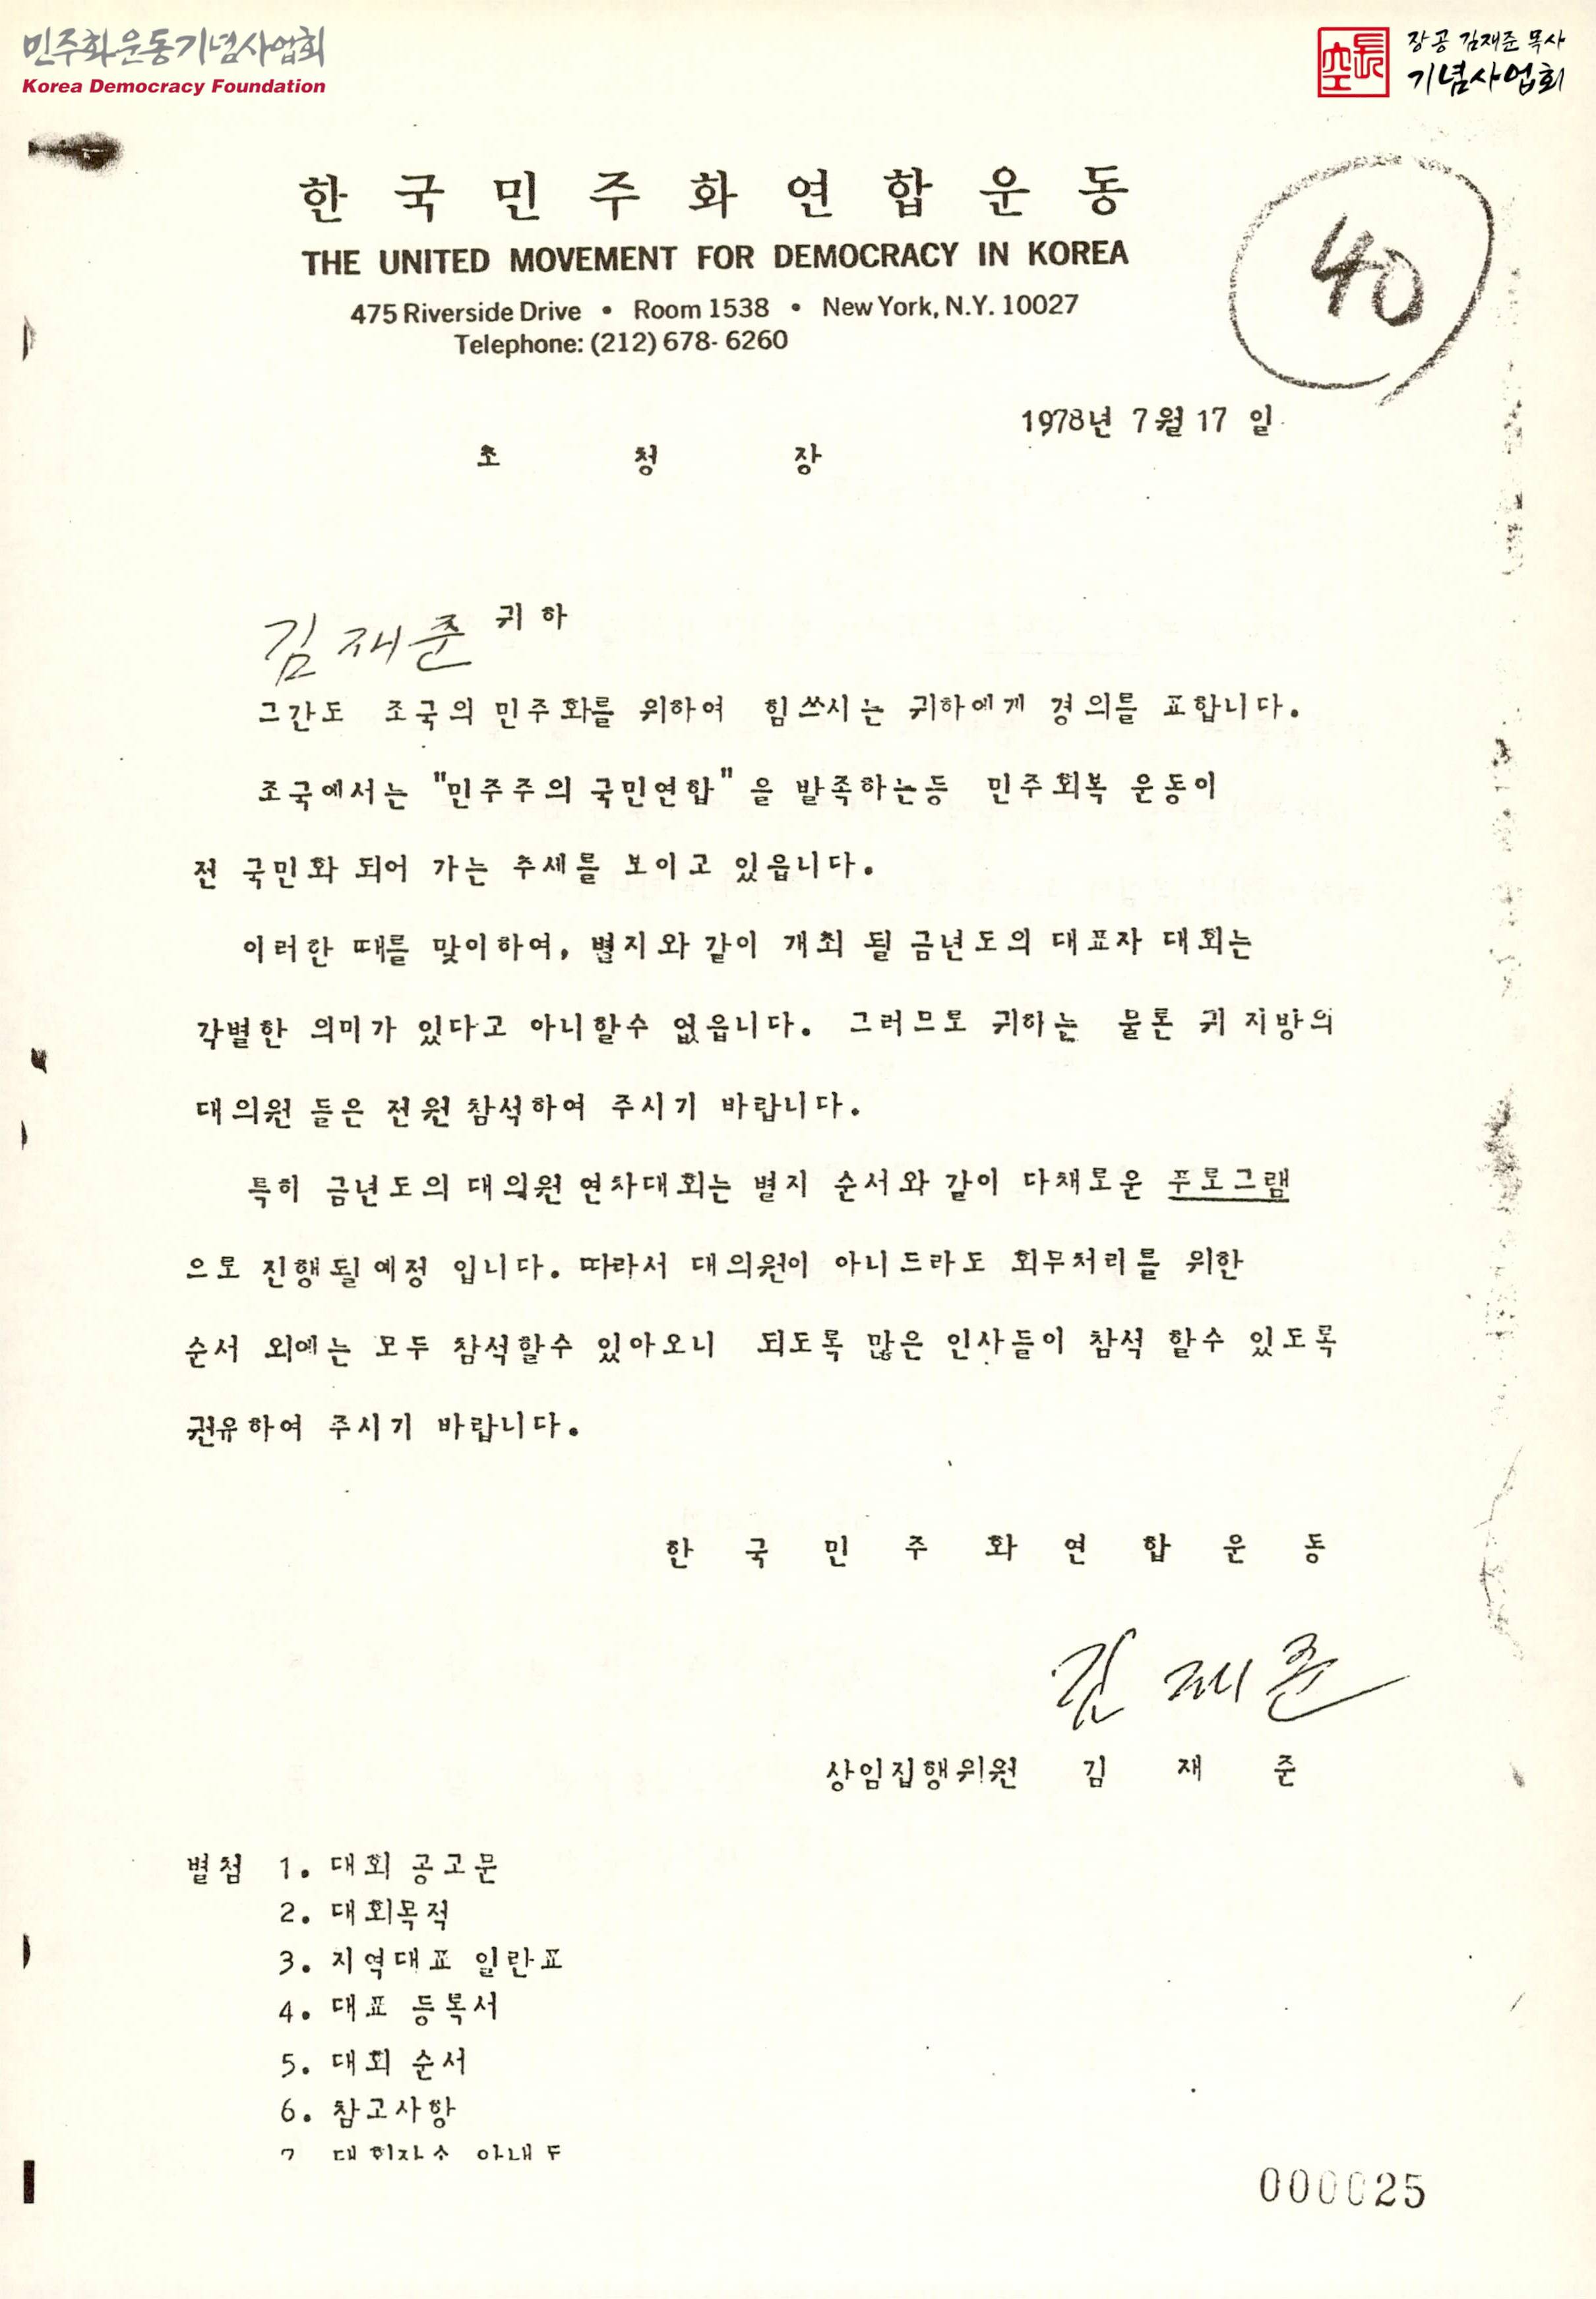 민주화운동기념사업회
Korea Democracy Foundation
장공 김재준 목사
기념사업회
한국민주화연합운동
THE UNITED MOVEMENT FOR DEMOCRACY IN KOREA
475 Riverside Drive • Room 1538 • New York, N.Y. 10027
Telephone: (212) 678-6260
40
1978년 7월 17일
초 청 장
김재준 귀하
그간도 조국의 민주화를 위하여 힘쓰시는 귀하에게 경의를 표합니다.
조국에서는 "민주주의 국민연합"을 발족하는등 민주회복 운동이
전 국민화 되어 가는 추세를 보이고 있읍니다.
이러한 때를 맞이하여, 별지와 같이 개최 될 금년도의 대표자 대회는
각별한 의미가 있다고 아니할수 없읍니다. 그러므로 귀하는 물론 귀 지방의
대의원 들은 전원 참석하여 주시기 바랍니다.
특히 금년도의 대의원 연차대회는 별지 순서와 같이 다채로운 푸로그램
으로 진행될예정 입니다. 따라서 대의원이 아니드라도 회무처리를 위한
순서 외에는 모두 참석할수 있아오니 되도록 많은 인사들이 참석 할수 있도록
권유하여 주시기 바랍니다.
한 국 민 주 화 연 합 운 동
김재준
상임집행위원 김 재 준
별첨 1. 대회 공고문
2. 대회목적
3. 지역대표 일란표
4. 대표 등록서
5. 대회 순서
6. 참고사항
000025